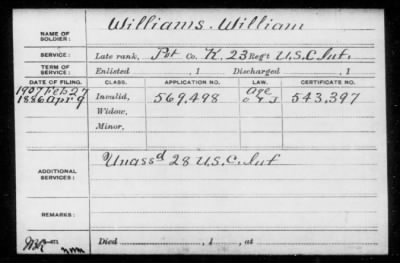 NAME OF SOLDIER: Williams, William
SERVICE: Late rank, Pvt Co. K, 23 Reg't U.S.C. Inf.
TERM OF SERVICE: Enlisted , 1 Discharged , 1
DATE OF FILING. CLASS. APPLICATION NO. LAW. CERTIFICATE NO.
1907 Feb 27 Age
1886 Apr 9 Invalid, 569,498 543,397
Widow,
Minor,
ADDITIONAL SERVICES: Unass'd 28 U.S.C. Inf
REMARKS:
Died , 1 , at